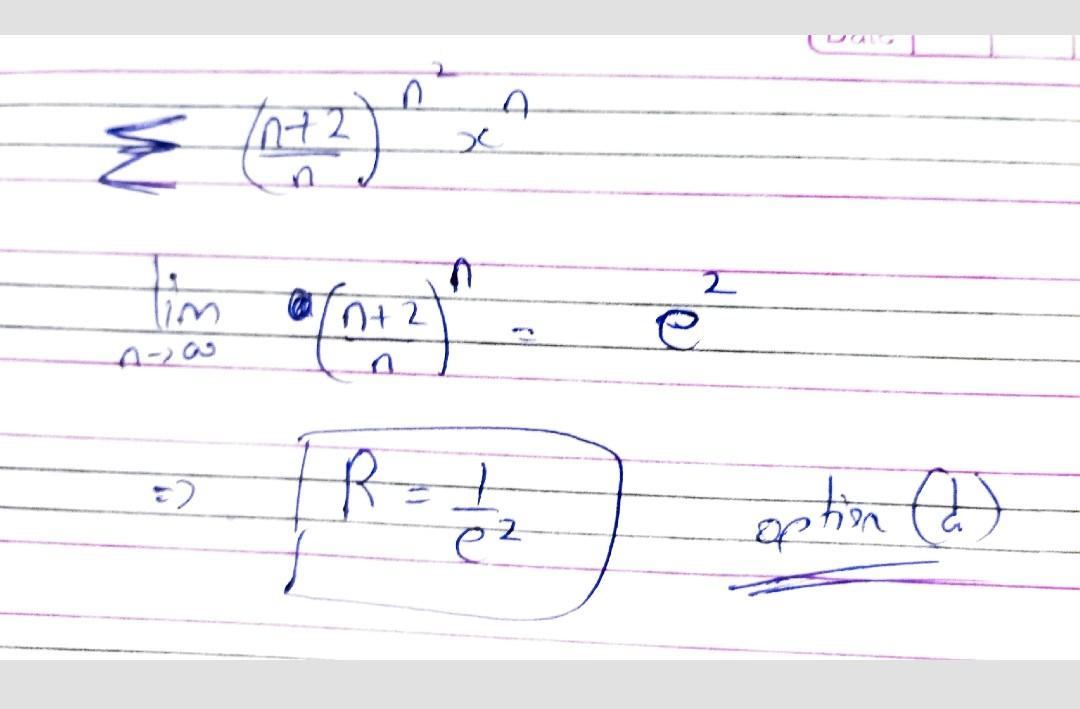 Date
∑ ((n+2)/n)^n² x^n
lim n→∞ ((n+2)/n)^n = e²
=> R = 1/e² option